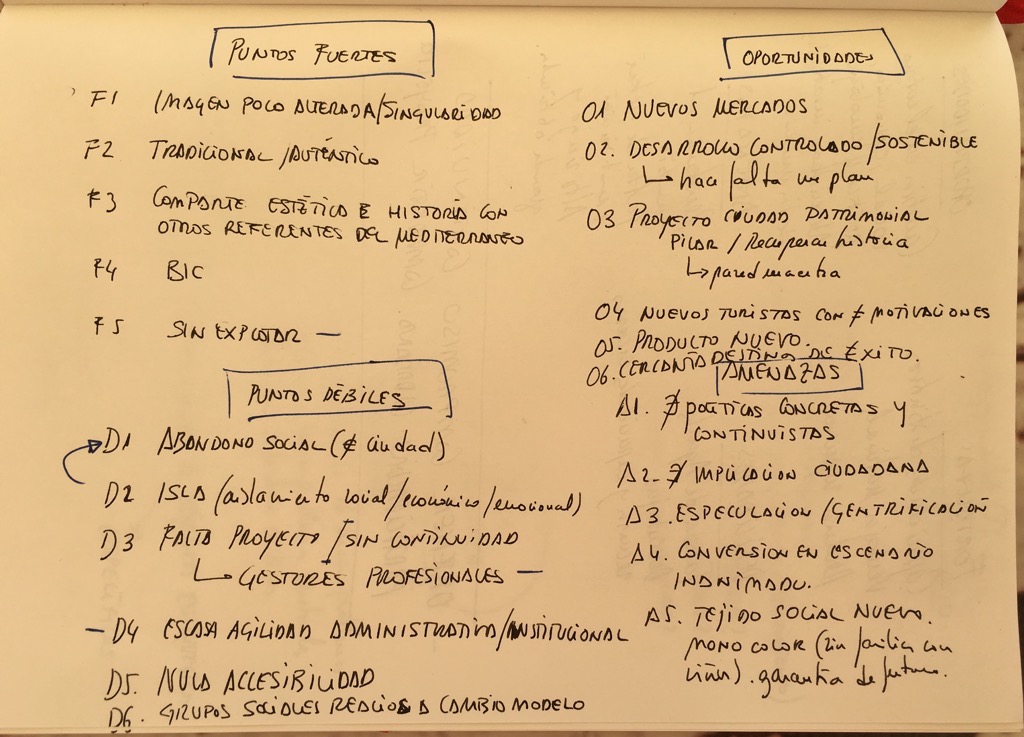 PUNTOS FUERTES
F1 IMAGEN POCO ALTERADA/SINGULARIDAD
F2 TRADICIONAL/AUTÉNTICO
F3 COMPARTE ESTÉTICA E HISTORIA CON
OTROS REFERENTES DEL MEDITERRANEO
F4 BIC
F5 SIN EXPLOTAR —
PUNTOS DÉBILES
D1 ABANDONO SOCIAL (≠ ciudad)
D2 ISLA (aislamiento social/económico/emocional)
D3 FALTA PROYECTO/SIN CONTINUIDAD
↳ GESTORES PROFESIONALES —
— D4 ESCASA AGILIDAD ADMINISTRATIVA/INSTITUCIONAL
D5. NULA ACCESIBILIDAD
D6. GRUPOS SOCIALES REACIOS A CAMBIO MODELO
OPORTUNIDADES
O1 NUEVOS MERCADOS
O2. DESARROLLO CONTROLADO/SOSTENIBLE
↳ hace falta un plan
O3 PROYECTO CIUDAD PATRIMONIAL
PILAR / Recuperar historia
↳ pared maestra
O4 NUEVOS TURISTAS CON ≠ MOTIVACIONES
O5. PRODUCTO NUEVO.
O6. CERCANÍA DESTINO DE ÉXITO.
AMENAZAS
A1. ∄ POLÍTICAS CONCRETAS Y
CONTINUISTAS
A2- ∄ IMPLICACIÓN CIUDADANA
A3. ESPECULACION/GENTRIFICACIÓN
A4. CONVERSION EN ESCENARIO
INANIMADO.
A5. TEJIDO SOCIAL NUEVO.
MONO COLOR (sin familia con
niños). garantía de futuro.